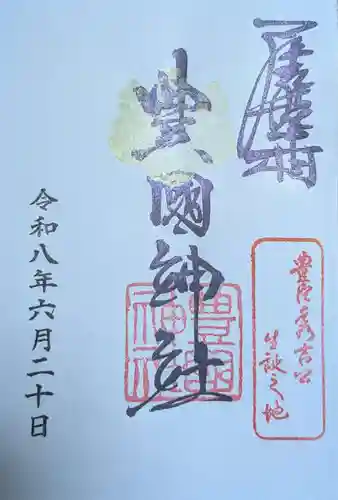 豊國神社
豊臣秀吉公
生誕之地
豊國
神社
令和八年六月二十日